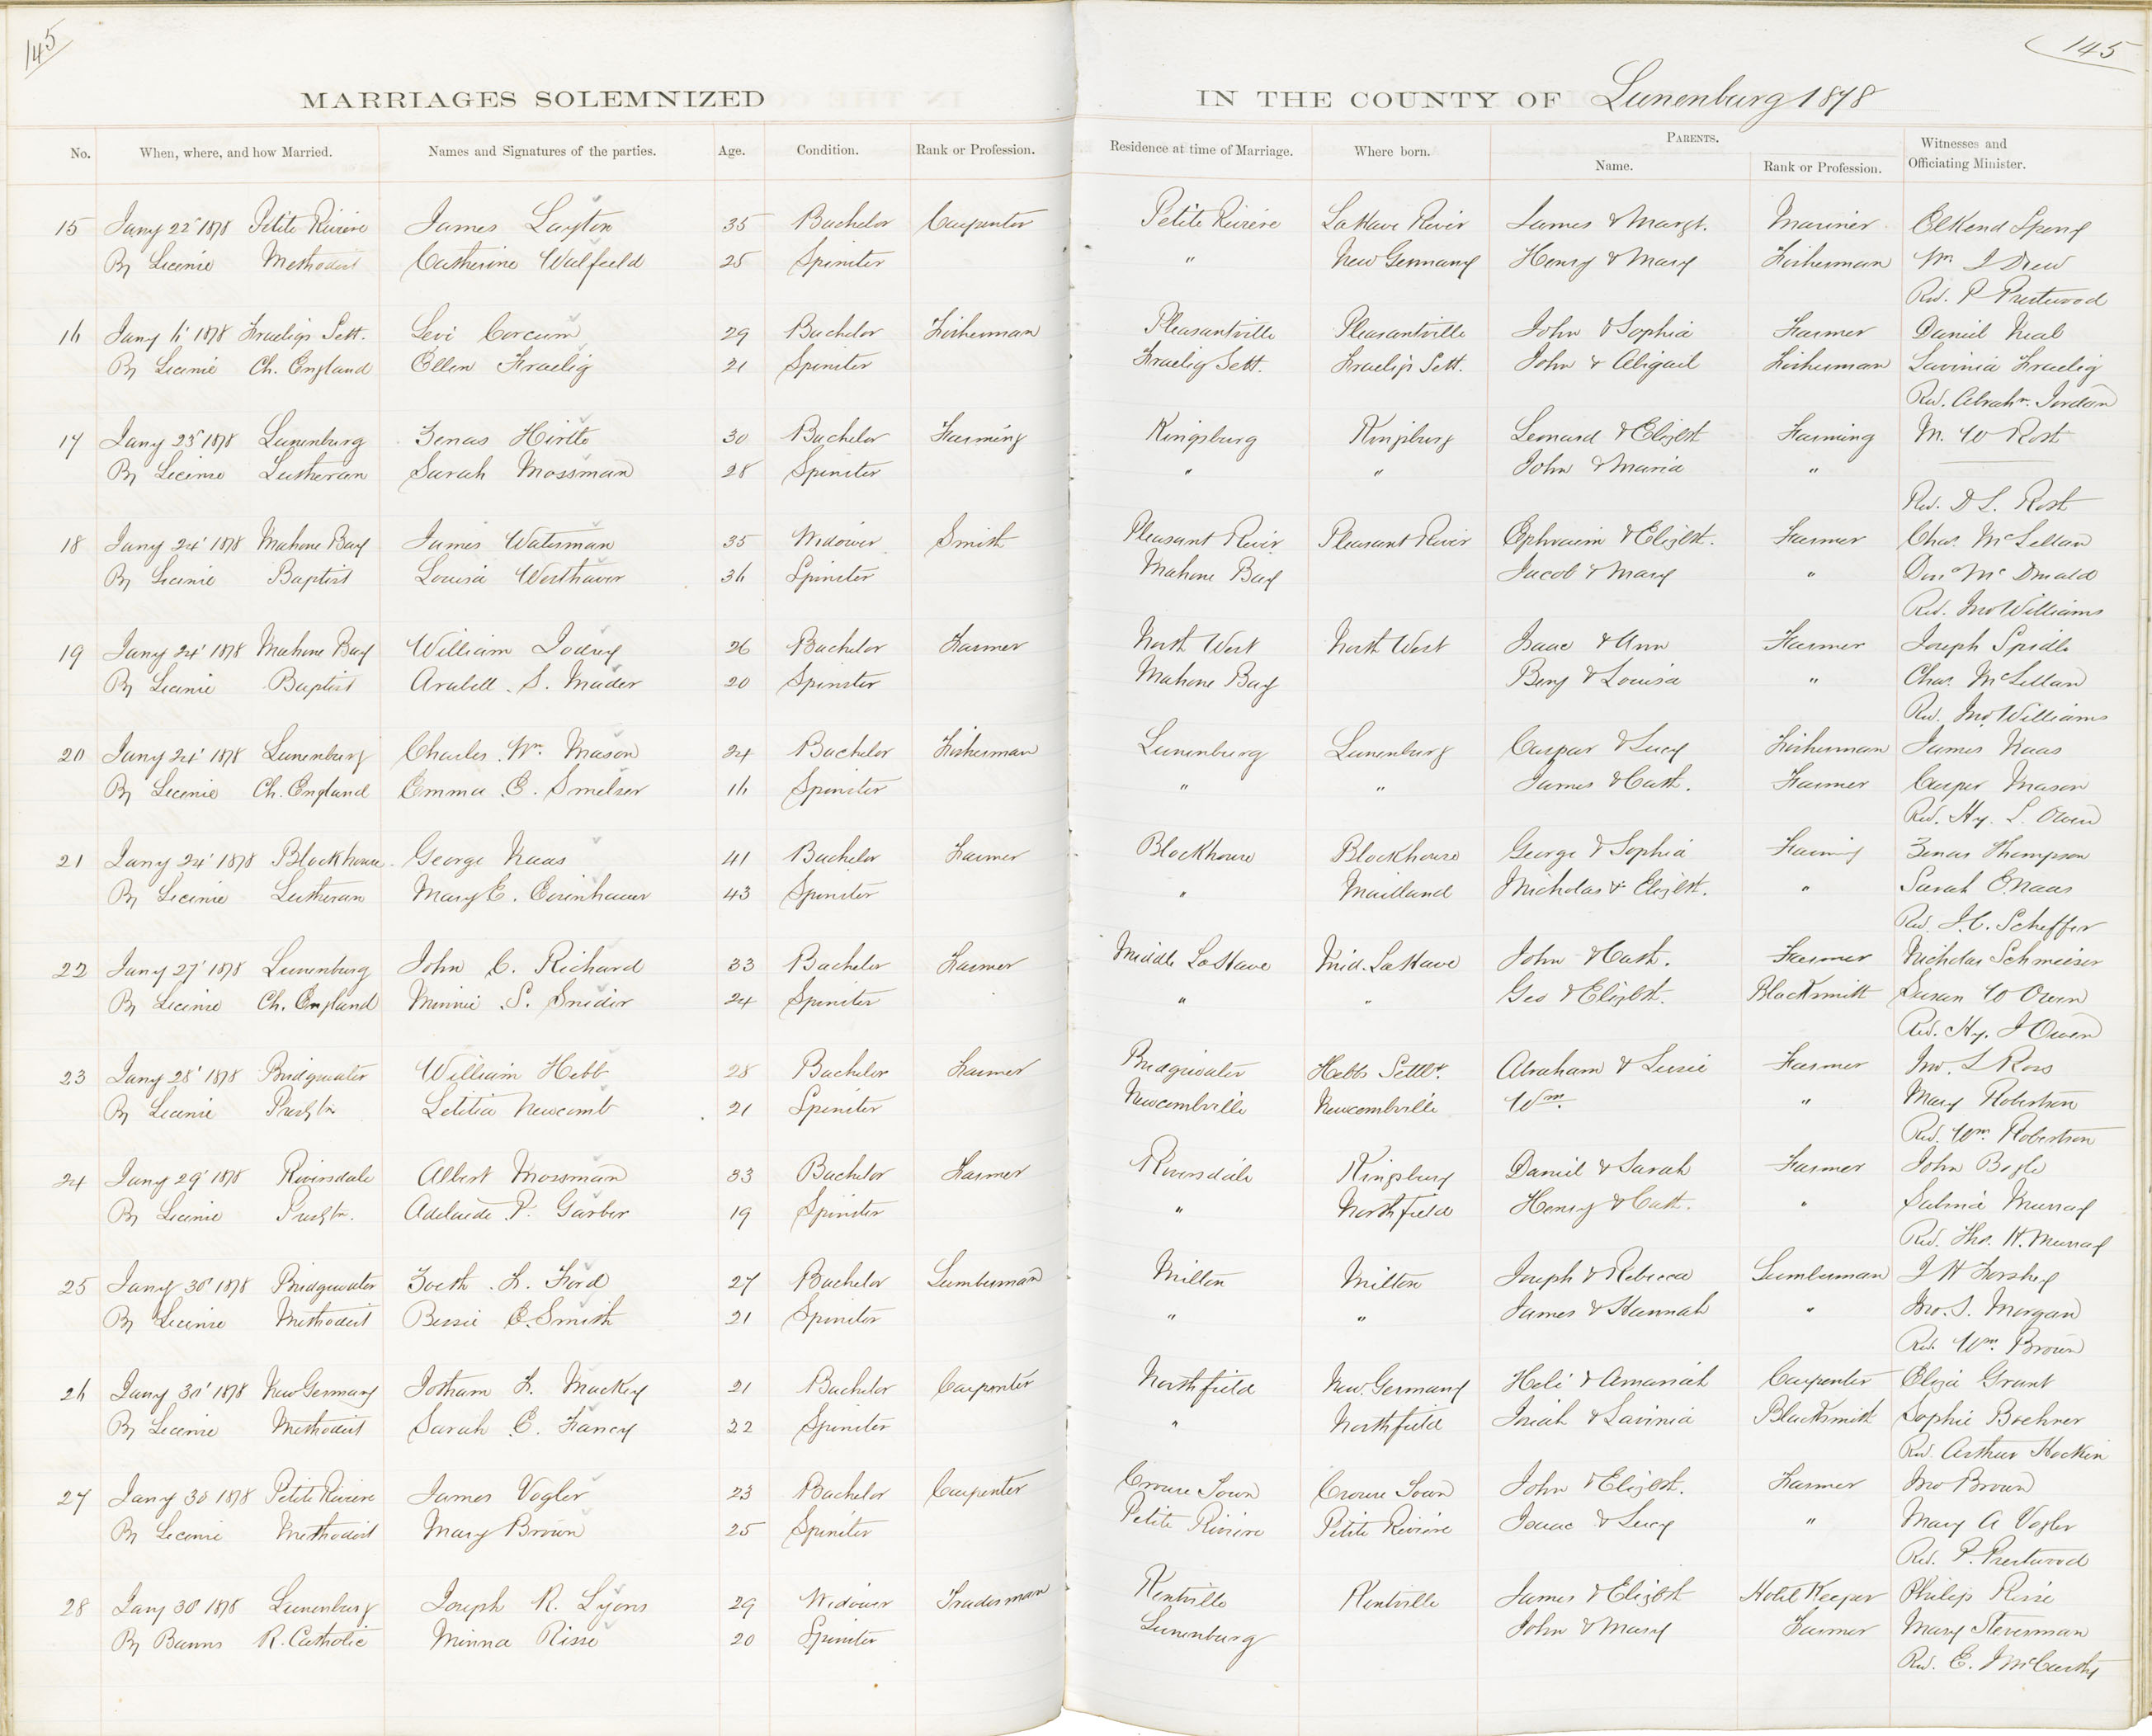 145
145
MARRIAGES SOLEMNIZED IN THE COUNTY OF Lunenburg 1878
No. When, where, and how Married. Names and Signatures of the parties. Age. Condition. Rank or Profession. Residence at time of Marriage. Where born. PARENTS. Name. Rank or Profession. Witnesses and Officiating Minister.
15 Jany 22' 1878 Petite Riviere James Layton 35 Bachelor Carpenter Petite Riviere LaHave River James & Margt. Mariner Elkend Speny
By License Methodist Catherine Walfield 25 Spinster " New Germany Henry & Mary Fisherman Wm J Drew
Rev. P Prestwood
16 Jany 6' 1878 Fraeligs Sett. Levi Corcum 29 Bachelor Fisherman Pleasantville Pleasantville John & Sophia Farmer Daniel Neal
By License Ch. England Ellen Fraelig 21 Spinster Fraelig Sett. Fraeligs Sett. John & Abigail Fisherman Lavinia Fraelig
Rev. Abrahm. Jordon
17 Jany 23' 1878 Lunenburg Zenas Hirtle 30 Bachelor Farming Kingsburg Kingsburg Leonard & Elizbt. Farming M. W Rost
By License Lutheran Sarah Mossman 28 Spinster " " John & Maria "
Rev. D L. Rost
18 Jany 24' 1878 Mahone Bay James Waterman 35 Widower Smith Pleasant River Pleasant River Ephraim & Elizbt. Farmer Chas. McLellan
By License Baptist Louisa Westhaver 36 Spinster Mahone Bay Jacob & Mary " Dond McDonald
Rev. Jno Williams
19 Jany 24' 1878 Mahone Bay William Joudrey 26 Bachelor Farmer North West North West Isaac & Ann Farmer Joseph Spidle
By License Baptist Arabell. S. Mader 20 Spinster Mahone Bay Benj & Louisa " Chas. McLellan
Rev. Jno Williams
20 Jany 24' 1878 Lunenburg Charles. Wm. Mason 24 Bachelor Fisherman Lunenburg Lunenburg Caspar & Lucy Fisherman James Naas
By License Ch. England Emma E. Smelser 16 Spinster " " James & Cath. Farmer Casper Mason
Rev. Hy. L. Owen
21 Jany 24' 1878 Blockhouse George Naas 41 Bachelor Farmer Blockhouse Blockhouse George & Sophia Farming Zenas Thompson
By License Lutheran Mary E. Eisenhauer 43 Spinster " Maitland Nicholas & Elizbt. " Sarah E Naas
Rev. J. C. Scheffer
22 Jany 27' 1878 Lunenburg John C. Richard 33 Bachelor Farmer Middle LaHave Mid. LaHave John & Cath. Farmer Nicholas Schmeiser
By License Ch. England Minnie S. Snider 24 Spinster " " Geo & Elizbt. Blacksmith Susan W Owen
Rev. Hy. J Owen
23 Jany 28' 1878 Bridgewater William Hebb 28 Bachelor Farmer Bridgewater Hebbs Settlt. Abraham & Susie Farmer Jno. L Ross
By License Presbtn Letitia Newcomb 21 Spinster Newcombville Newcombville Wm. " Mary Robertson
Rev. Wm. Robertson
24 Jany 29' 1878 Riversdale Albert Mossman 33 Bachelor Farmer Riversdale Kingsburg Daniel & Sarah Farmer John Bogle
By License Presbtn. Adelaide P. Garber 19 Spinster " Northfield Henry & Cath. " Salmia Murray
Rev. Tho. H. Murray
25 Jany 30' 1878 Bridgewater Zoeth. F. Ford 27 Bachelor Lumberman Milton Milton Joseph & Rebecca Lumberman J H Forshey
By License Methodist Bessie E. Smith 21 Spinster " " James & Hannah " Jno. S. Morgan
Rev. Wm. Brown
26 Jany 30' 1878 New Germany Jotham F. Mackey 21 Bachelor Carpenter Northfield New Germany Heli & Amariah Carpenter Eliza Grant
By License Methodist Sarah E. Fancy 22 Spinster " Northfield Josiah & Lavinia Blacksmith Sophie Boehner
Rev. Arthur Hockin
27 Jany 30 1878 Petite Riviere James Vogler 23 Bachelor Carpenter Crouse Town Crouse Town John & Elizbt. Farmer Jno Brown
By License Methodist Mary Brown 25 Spinster Petite Riviere Petite Riviere Isaac & Lucy " Mary A Vogler
Rev. P. Prestwood
28 Jany 30' 1878 Lunenburg Joseph R. Lyons 29 Widower Tradesman Kentville Kentville James & Elizbth Hotel Keeper Philip Risse
By Banns R. Catholic Minna Risse 20 Spinster Lunenburg John & Mary Farmer Mary Steverman
Rev. E. McCarthy